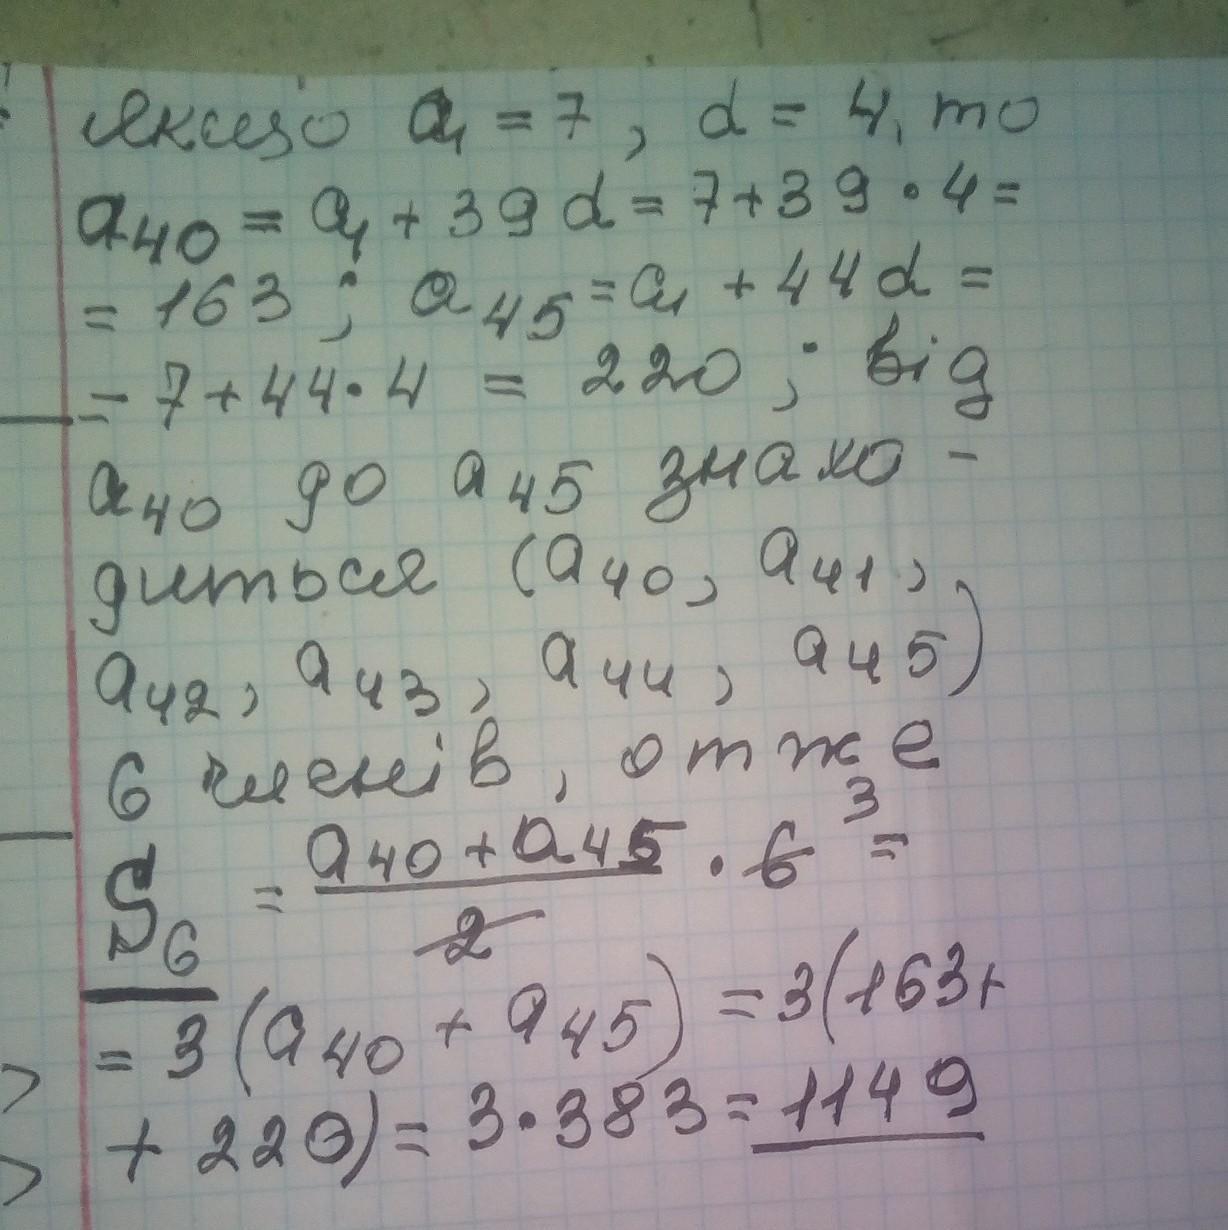 якщо a₁ = 7, d = 4, то
a₄₀ = a₁ + 39d = 7 + 39 • 4 =
= 163; a₄₅ = a₁ + 44d =
= 7 + 44 • 4 = 220; від
a₄₀ до a₄₅ знахо -
диться (a₄₀, a₄₁,
a₄₂, a₄₃, a₄₄, a₄₅)
6 членів, отже
S₆ = (a₄₀ + a₄₅)/2 • 6 ³ =
= 3(a₄₀ + a₄₅) = 3(163 +
+ 220) = 3 • 383 = 1149